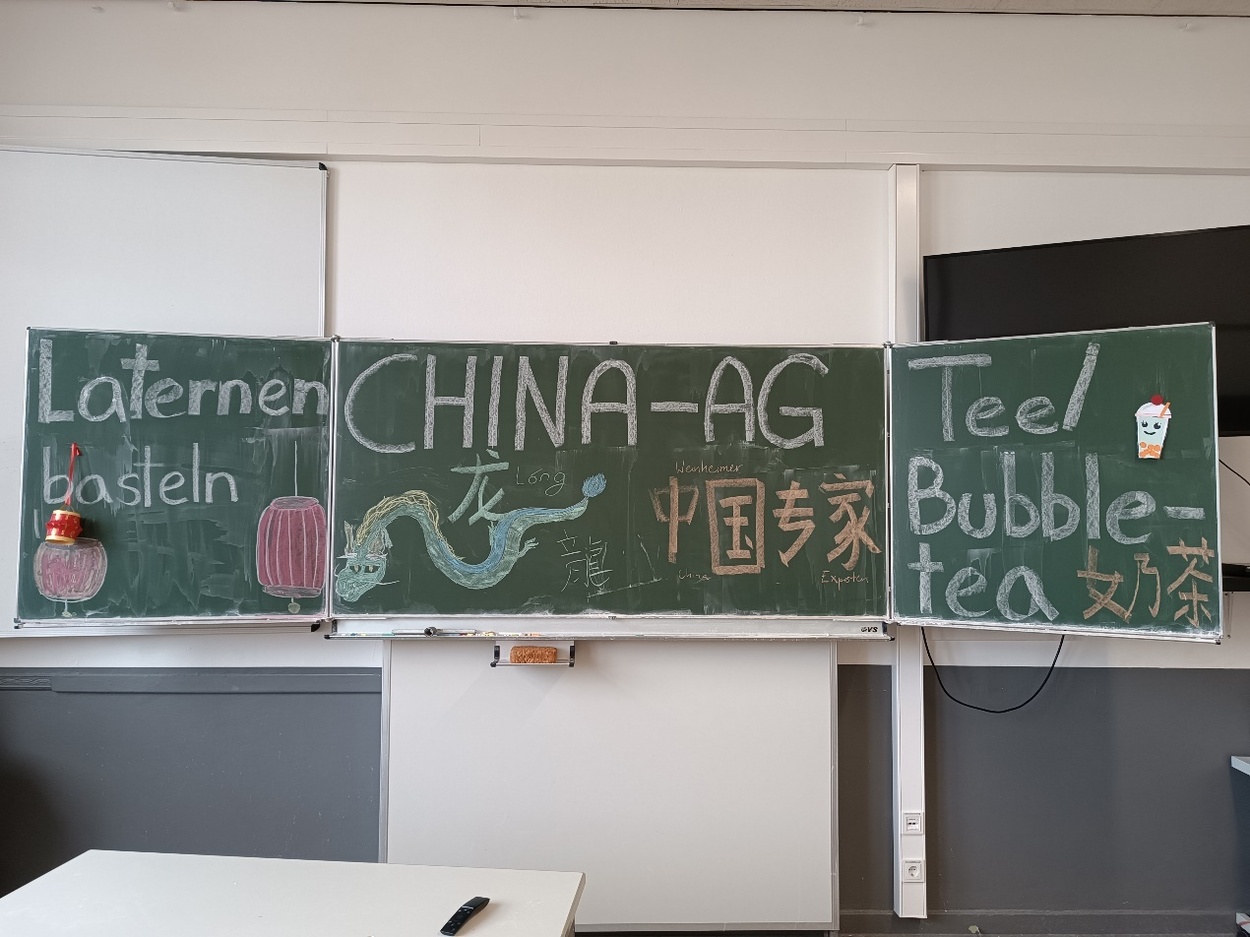 Laternen
basteln
CHINA-AG
龙 Lóng
龍
Weinheimer
中国专家
China Experten
Tee/
Bubble-
tea 奶茶
GVS